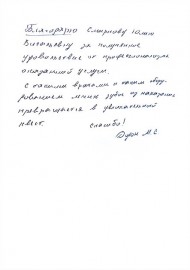 Благодарю Смирнову Юлию
Витальевну за полученное
удовольствие от профессионализма
оказанной услуги.
С такими врачами и таким обору-
дованием лечение зубов из наказания
превращается в увлекательный
квест.
Спасибо!